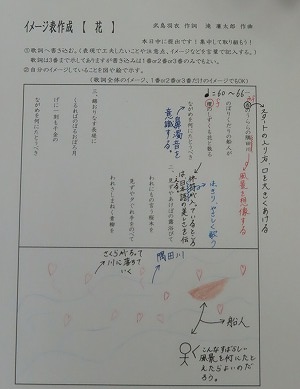 イメージ表作成【 花 】
武島羽衣 作詞 滝 廉太郎 作曲
本日中に提出です!集中して取り組もう!
①歌詞へ書き込むよく表現で工夫したいことや注意点、イメージなどを言葉で記入する。)
歌詞は3番まで示してありますが書き込みは1番or2番or3番のみでもよい。
②自分のイメージしていることを図や絵で示す。
(歌詞全体のイメージ、1番or2番or3番だけのイメージでもOK)
スタートの入り方、口を大きくあける
♩=60〜66
うららの隅田川
のぼりくだりの船人が
櫂のしずくも花と散る
ながめを何にたとうべき
風景を想像する
鼻濁音を意識する。
はっきり、やさしく歌う
二、見ずやあけぼの露浴びて
われにもの言う桜木を
見ずや夕ぐれ手をのべて
われさしまねく青柳を
三、錦おりなす長堤に
くるればのぼるおぼろ月
げに一刻も千金の
ながめを何にたとうべき
さくらがちって
川に落ちて
いく
隅田川
船人
こんなすばらしい
風景を何にたと
えたらよいのだ
ろう。